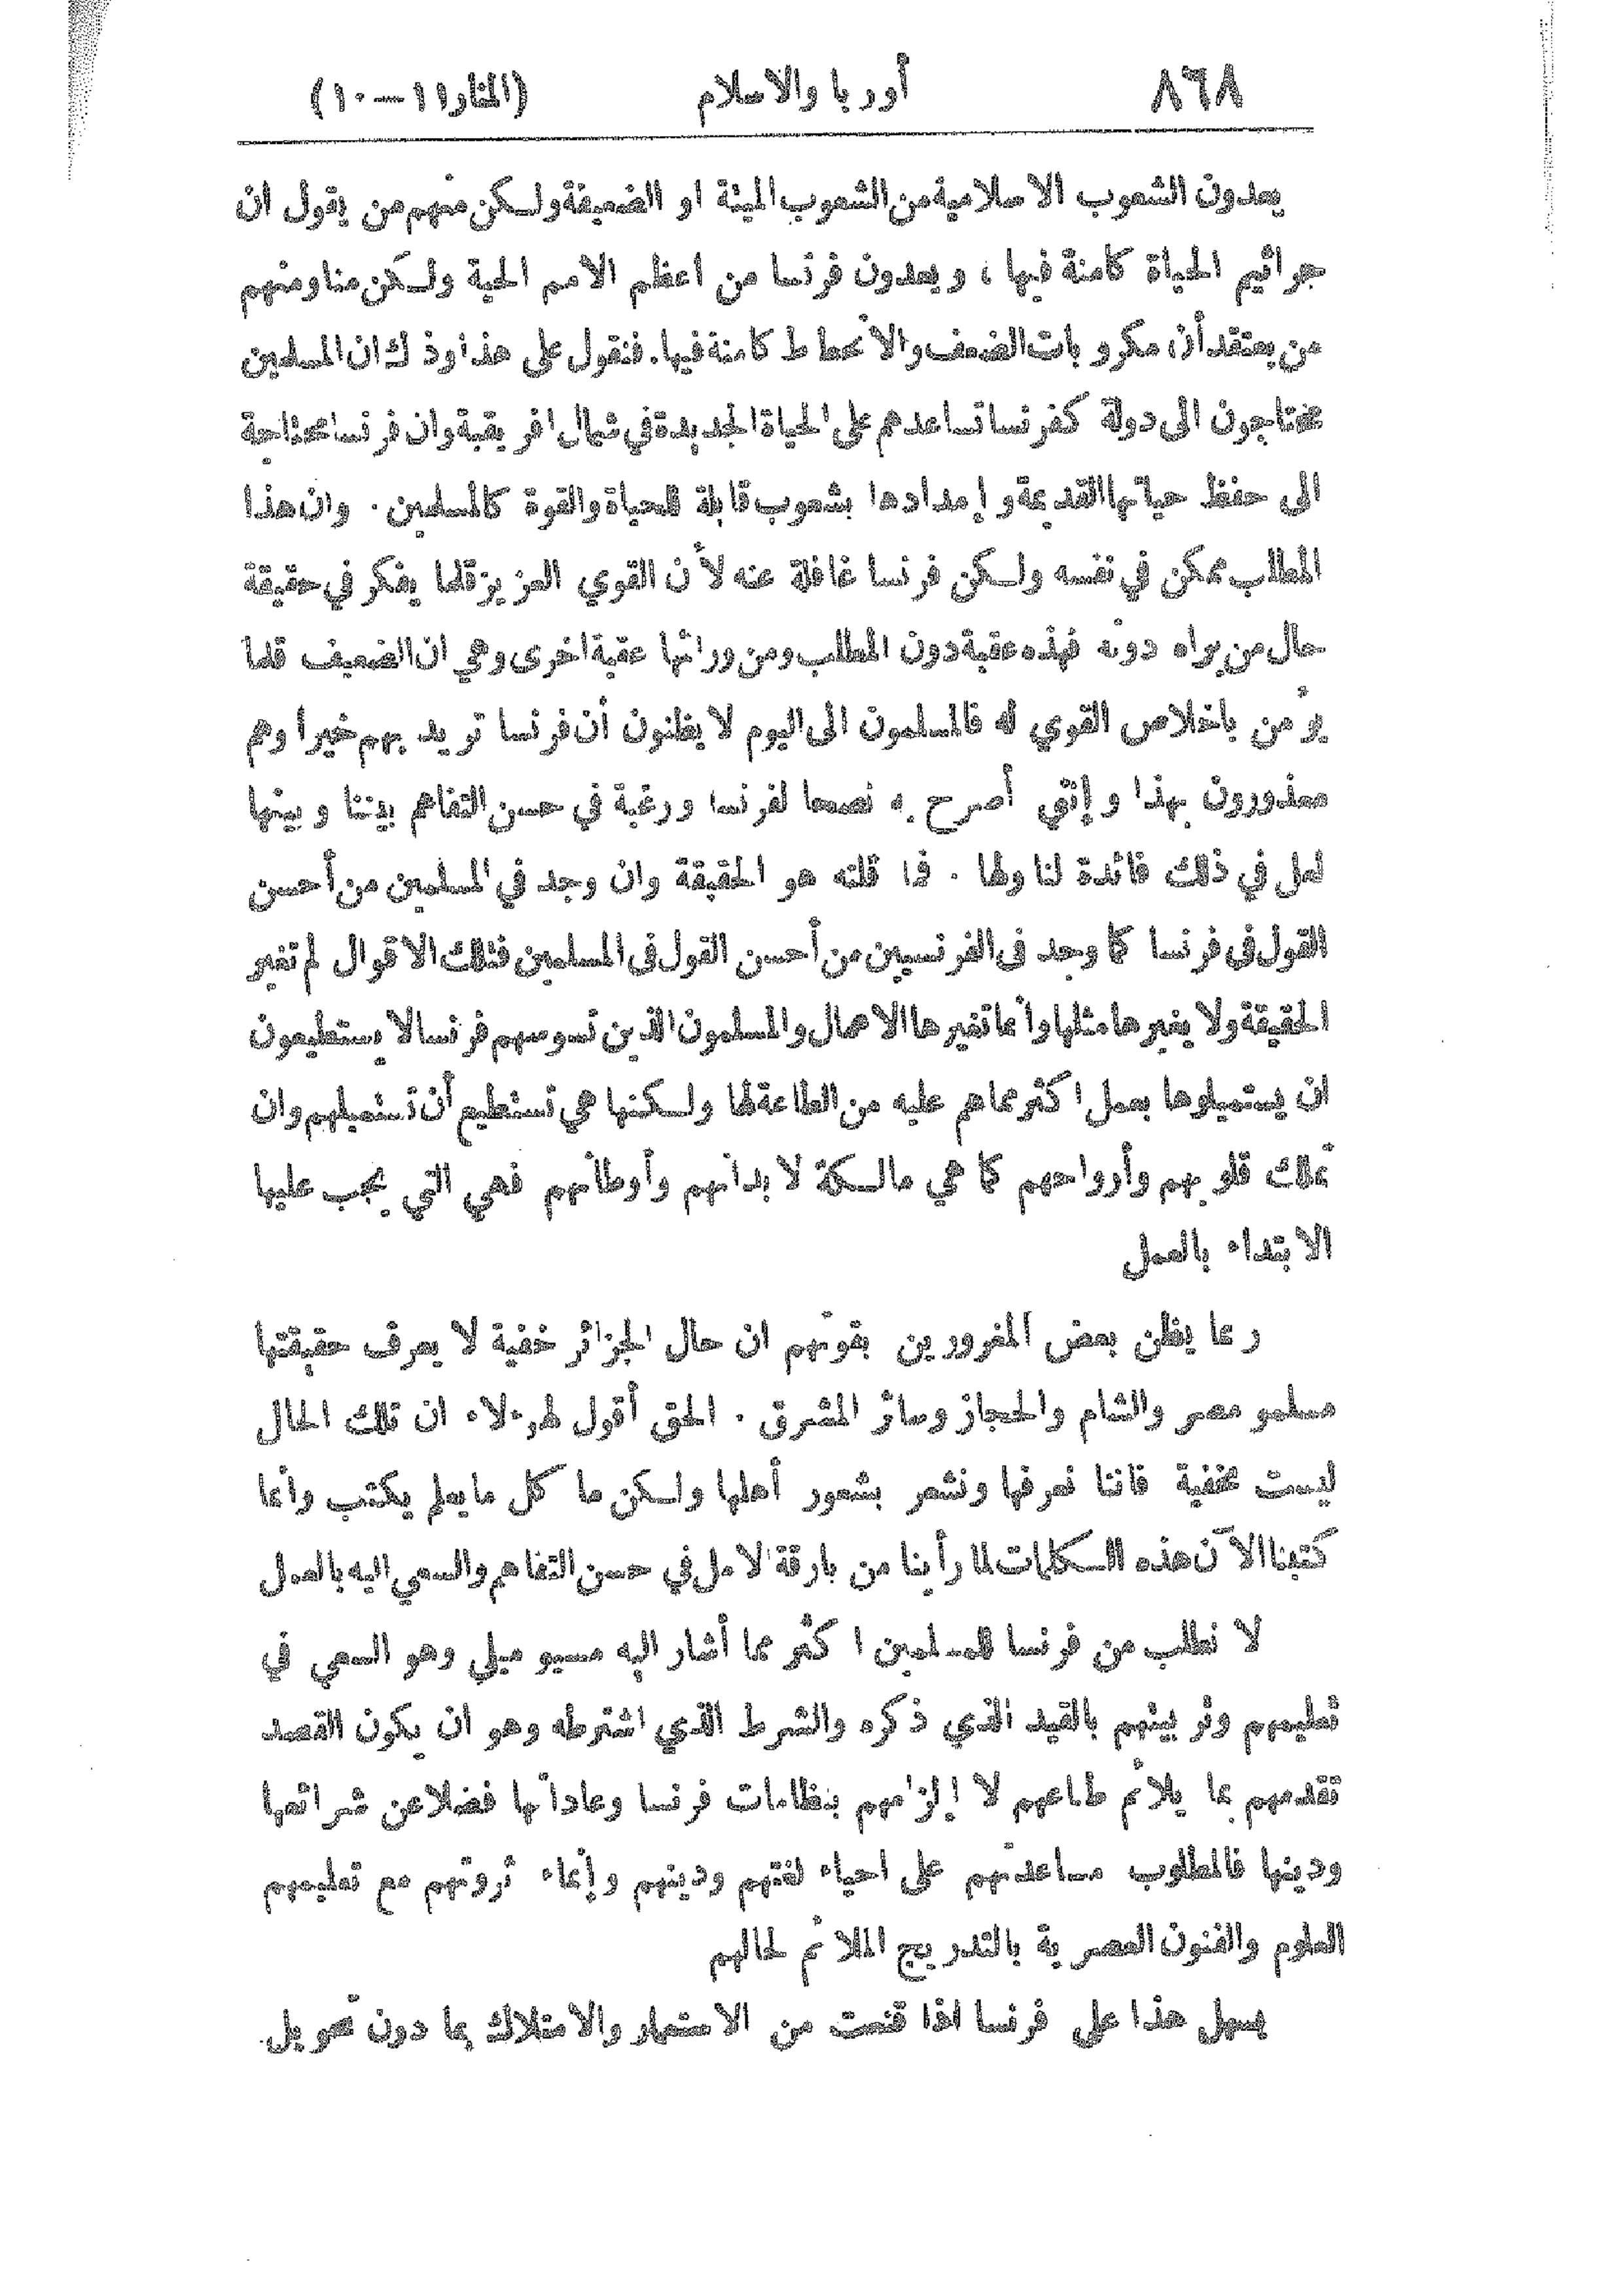 ٨٦٨ أوربا والاسلام (المنار ١١ — ١٠)
يعدون الشعوب الاسلامية من الشعوب الميتة او الضعيفة ولكن منهم من يقول ان
جراثيم الحياة كامنة فيها ، ويعدون فرنسا من اعظم الامم الحية ولكن منا ومنهم
من يعتقد أن مكروبات الضعف والانحطاط كامنة فيها. فنقول على هذا وذاك ان المسلمين
محتاجون الى دولة كفرنسا تساعدهم على الحياة الجديدة في شمال افريقية وان فرنسا محتاجة
الى حفظ حياتها القديمة وإمدادها بشعوب قابلة للحياة والقوة كالمسلمين . وان هذا
المطلب ممكن في نفسه ولكن فرنسا غافلة عنه لأن القوي العزيز قلما يفكر في حقيقة
حال من يراه دونه فهذه عقبة دون المطلب ومن ورائها عقبة اخرى وهي ان الضعيف قلما
يؤمن باخلاص القوي له فالمسلمون الى اليوم لا يظنون أن فرنسا تريد بهم خيرا وهم
معذورون بهذا وإنني أصرح به نصحا لفرنسا ورغبة في حسن التفاهم بيننا وبينها
لعل في ذلك فائدة لنا ولها . فما قلته هو الحقيقة وان وجد في المسلمين من أحسن
القول فى فرنسا كما وجد فى الفرنسيين من أحسن القول فى المسلمين فتلك الاقوال لم تغير
الحقيقة ولا يغيرها مثلها وانما تغيرها الاعمال والمسلمون الذين تسوسهم فرنسا لا يستطيعون
ان يستميلوها بعمل اكثر مماهم عليه من الطاعة لها ولكنها هي تستطيع أن تستميلهم وان
تملك قلوبهم وأرواحهم كما هي مالكة لابدانهم وأوطانهم فهي التي يجب عليها
الابتداء بالعمل
ربما يظن بعض المغرورين بقوتهم ان حال الجزائر خفية لا يعرف حقيقتها
مسلمو مصر والشام والحجاز وسائر المشرق . الحق أقول لهؤلاء ان تلك الحال
ليست بخفية فاننا نعرفها ونشعر بشعور أهلها ولكن ما كل ما يعلم يكتب وانما
كتبنا الآن هذه الكلمات لما رأينا من بارقة الامل في حسن التفاهم والسعي اليه بالعدل
لا نطلب من فرنسا للمسلمين اكثر مما أشار اليه مسيو ميلي وهو السعي في
تعليمهم وتربيتهم بالقيد الذي ذكره والشرط الذي اشترطه وهو ان يكون القصد
تقدمهم بما يلائم طباعهم لا إلزامهم بنظامات فرنسا وعاداتها فضلا عن شرائعها
ودينها فالمطلوب مساعدتهم على احياء لغتهم ودينهم وإنماء ثروتهم مع تعليمهم
العلوم والفنون العصرية بالتدريج الملائم لحالهم
يسهل هذا على فرنسا اذا قنعت من الاستعمار والامتلاك بما دون تحويل